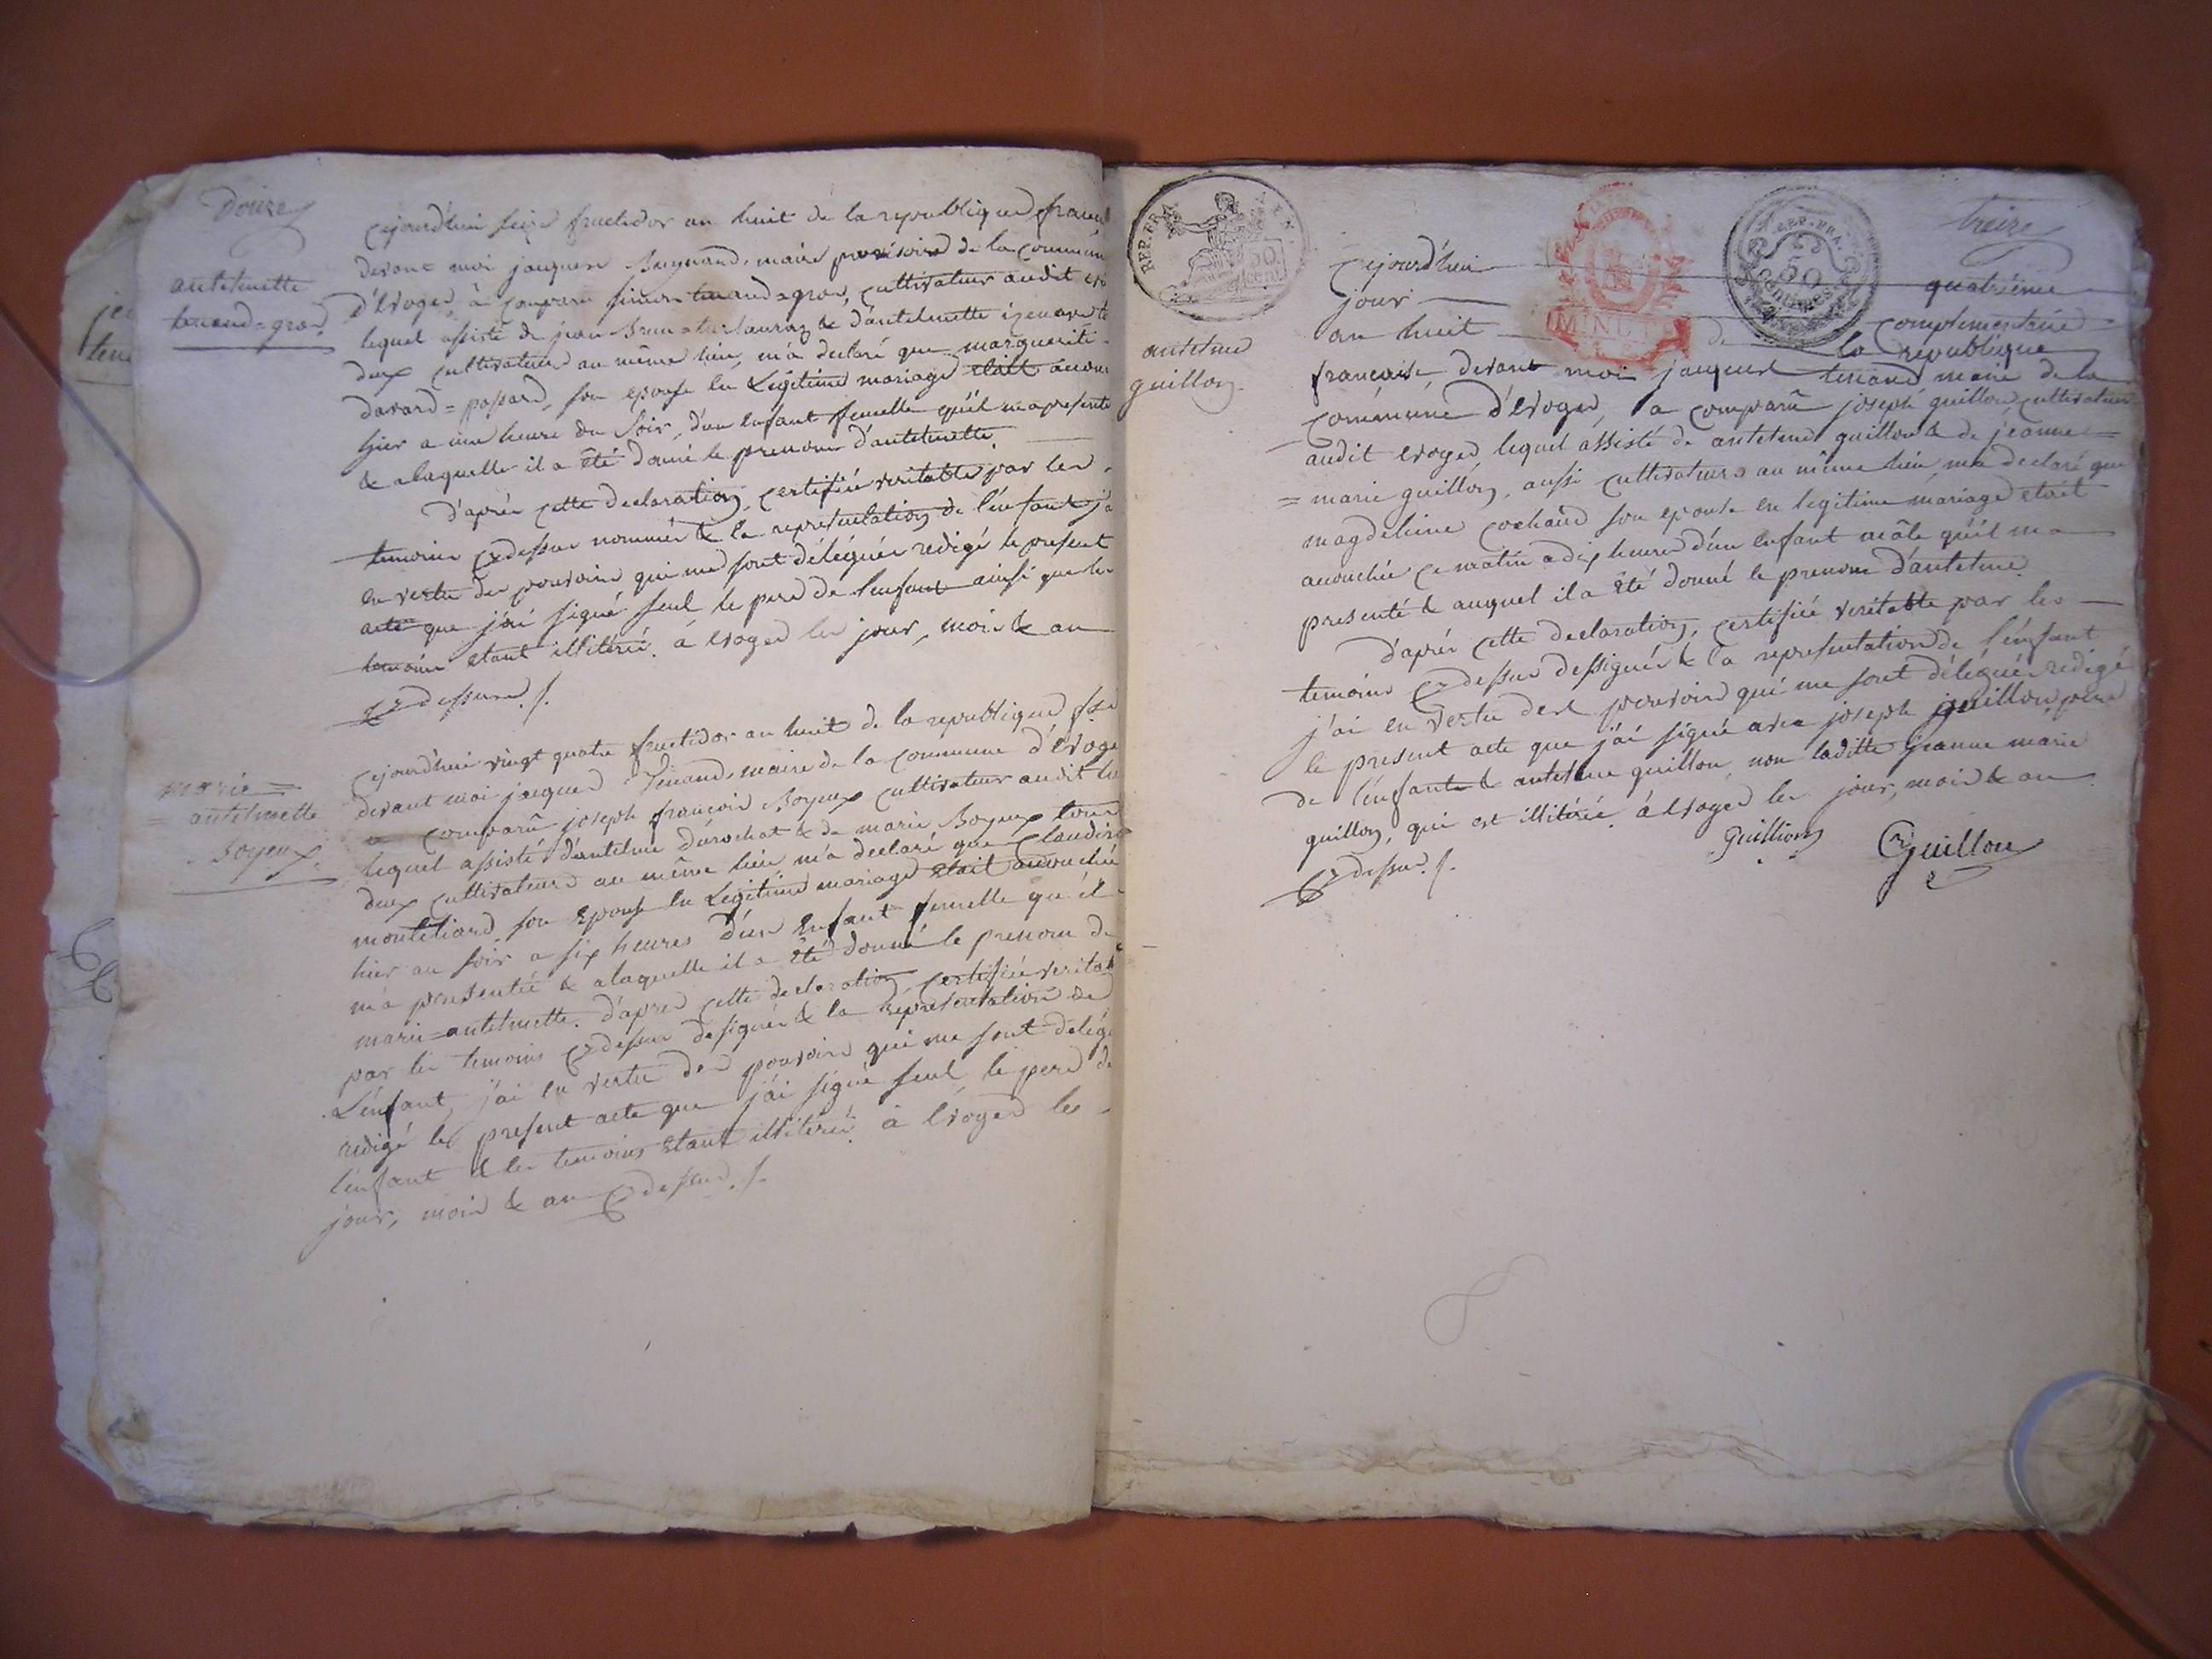 Douze
antelmette
tenand=gros
Cejourd'hui seize fructidor an huit de la republique francai
devant moi jacques Buynand, maire provisoire de la commune
d'Evoges, à comparu tenand=gros, cultivateur audit evo
lequel assisté de jean & d'antelmette
deux cultivateurs au même lieu, m'a declaré que marguerite
davard=passard, son epouse en Legitime mariage etait accou
hier a une heure du soir, d'un enfant femelle qu'il m'a presenté
& alaquelle il a été donné le prenom d'antelmette.
D'après cette declaration, certifiée veritable par les
temoins cydessus nommés & la representation de l'enfant j'a
en vertu des pouvoirs qui me sont délégués redigé le present
acte que j'ai signé seul le pere de l'enfant ainsi que les
temoins etant illitérés. à Evoges les jour, mois & an
cydessus ./.
marie=
=antelmette
Boyeux
Cejourd'hui vingt quatre fructidor an huit de la republique fse
devant moi jacques Tenand, maire de la commune d'Evoge
a comparû joseph françois Boyeux cultivateur audit lieu
lequel assisté d'antelme durochat & de marie Boyeux tous
deux cultivateurs au même lieu m'a declaré que Claudine
montiliard son epouse en Legitime mariage etait accouchée
hier au soir a six heures d'un Enfant femelle qu'il
m'a presentée & alaquelle il a été donné le prenom de
marie=antelmette. d'après cette declaration, certifiée veritab
par les temoins cydessus designés & la representation de
L'enfant, j'ai en vertu des pouvoirs qui me sont delég
redigé le present acte que j'ai signé seul le pere de
l'enfant & les temoins etant illitérés. à Evoges les
jour, mois & an cydessus ./.
REP. FRA.
50
cent
MINUTE
REP. FRA.
50
CENTIMES
treize
antelme
guillon
Cejourd'hui quatrième
jour complementaire
an huit de la republique
francaise, devant moi jacques tenand maire de la
commune d'Evoges, a comparû joseph guillon, cultivateur
audit evoges lequel assisté de antelme guillon & de jeanne=
=marie guillon, aussi cultivateurs au même lieu m'a declaré que
magdeleine cochaud son epouse en legitime mariage etait
accouchée ce matin a dix heures d'un enfant mâle qu'il m'a
presenté & auquel il a été donné le prenom d'antelme.
D'après cette declaration, certifiée veritable par les
temoins cydessus dessignés & la representation de l'enfant
j'ai en vertu des pouvoirs qui me sont délégués redigé
le present acte que j'ai signé avec joseph guillon, père
de l'enfant & antelme guillon, non laditte jeanne marie
guillon, qui est illitérée. à Evoges les jour, mois & an
cydessus ./.
Guillion Guillon